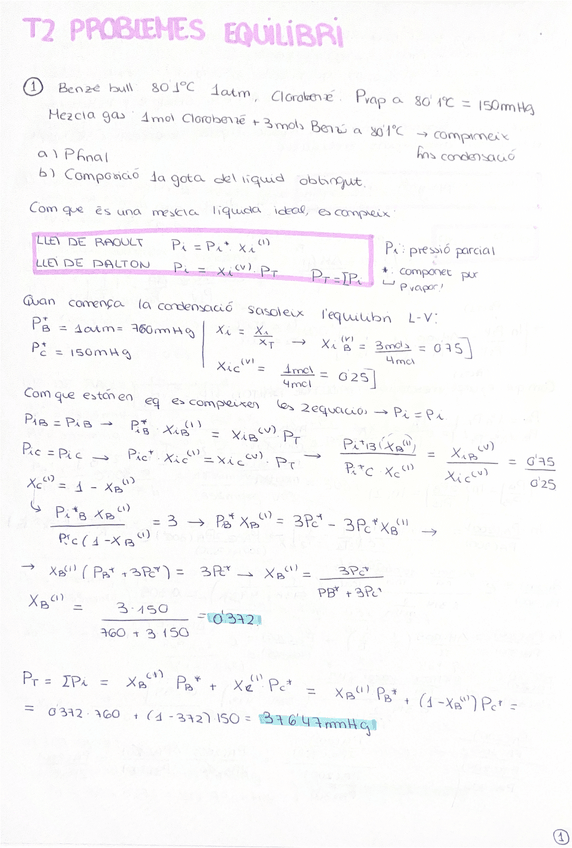 T2 PROBLEMES EQUILIBRI
① Benzé bull 80'1ºC 1atm, Clorobenzé. Pvap a 80'1ºC = 150mmHg
Mezcla gas: 1mol Clorobenzé + 3mols Benzé a 80'1ºC → comprimeix
fins condensació
a) Pfinal
b) Composició 1a gota del líquid obtingut.
Com que és una mescla líquida ideal, es compleix:
LLEI DE RAOULT Pi = Pi* xi(l)
LLEI DE DALTON Pi = xi(v) · PT PT = ΣPi
Pi: pressió parcial
*: component pur
Pvapor!
Quan comença la condensació s'assoleix l'equilibri L-V:
PB* = 1atm = 760mmHg
Pc* = 150mmHg
xi = xi/xT → xiB(v) = 3mols/4mol = 0'75]
xic(v) = 1mol/4mol = 0'25]
Com que estàn en eq es compleixen les 2 equacions → Pi = Pi
PiB = PiB → PiB* · xiB(l) = xiB(v) PT
Pic = Pic → Pic* · xic(l) = xic(v) · PT → Pi*B (xB(l)) / Pi*C xc(l) = xiB(v) / xic(v) = 0'75 / 0'25
xc(l) = 1 - xB(l)
↳ Pi*B xB(l) / Pi*c (1-xB(l)) = 3 → PB* xB(l) = 3Pc* - 3Pc* xB(l) →
→ xB(l) (PB* + 3Pc*) = 3Pc* → xB(l) = 3Pc* / PB* + 3Pc*
xB(l) = 3·150 / 760 + 3·150 = 0'372
PT = ΣPi = xB(l) PB* + xc(l) Pc* = xB(l) PB* + (1-xB(l)) Pc* =
= 0'372·760 + (1-372) 150 = 376'47mmHg
①